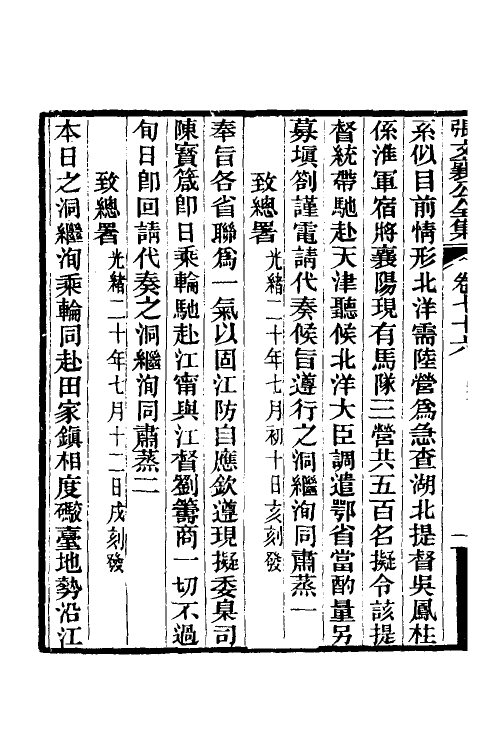 張文襄公全集 卷七十六 一
系似目前情形北洋需陸營爲急查湖北提督吳鳳柱
係淮軍宿將襄陽現有馬隊三營共五百名擬令該提
督統帶馳赴天津聽候北洋大臣調遣鄂省當酌量另
募塡劄謹電請代奏候旨遵行之洞繼洵同肅蒸一
致總署光緒二十年七月初十日亥刻發
奉旨各省聯爲一氣以固江防自應欽遵現擬委臬司
陳寶箴卽日乘輪馳赴江甯與江督劉籌商一切不過
旬日卽回請代奏之洞繼洵同肅蒸二
致總署光緒二十年七月十二日戌刻發
本日之洞繼洵乘輪同赴田家鎮相度礮臺地勢沿江